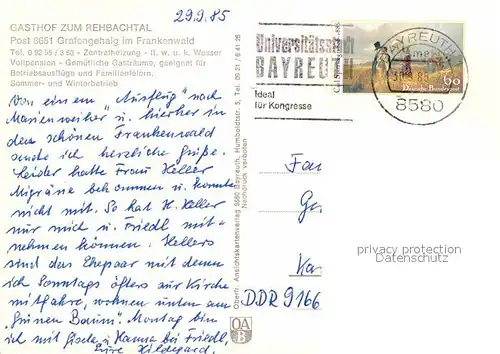 29.9.85
GASTHOF ZUM REHBACHTAL
Post 8651 Grafengehaig im Frankenwald
Tel. 0 92 55 / 3 63 - Zentralheizung - fl. w. u. k. Wasser
Vollpension - Gemütliche Gasträume, geeignet für
Betriebsausflüge und Familienfeiern.
Sommer- und Winterbetrieb
Von einem "Ausflug" nach
Marienweiher u. hierher in
den schönen Frankenwald
sende ich herzliche Grüße.
Leider hatte Frau Heller
Migräne bekommen u. konnte
nicht mit. So hat H. Heller
nur mich u. Friedl mit-
nehmen können. Hellers
sind das Ehepaar mit denen
ich Sonntags öfters zur Kirche
mitfahre, wohnen unten am
"Grünen Baum". Montag bin
ich mit Gisela u. Hanna bei Friedl,
Eure Hildegard.
Oberfr. Ansichtskartenverlag 8580 Bayreuth, Humboldtstr. 3, Tel. 09 21 / 6 41 26
Nachdruck verboten
OA
B
Universitätsstadt
BAYREUTH
Ideal
für Kongresse
BAYREUTH
8580
60
Deutsche Bundespost
Fam
Ge
Kar
DDR 9166
privacy protection
Datenschutz